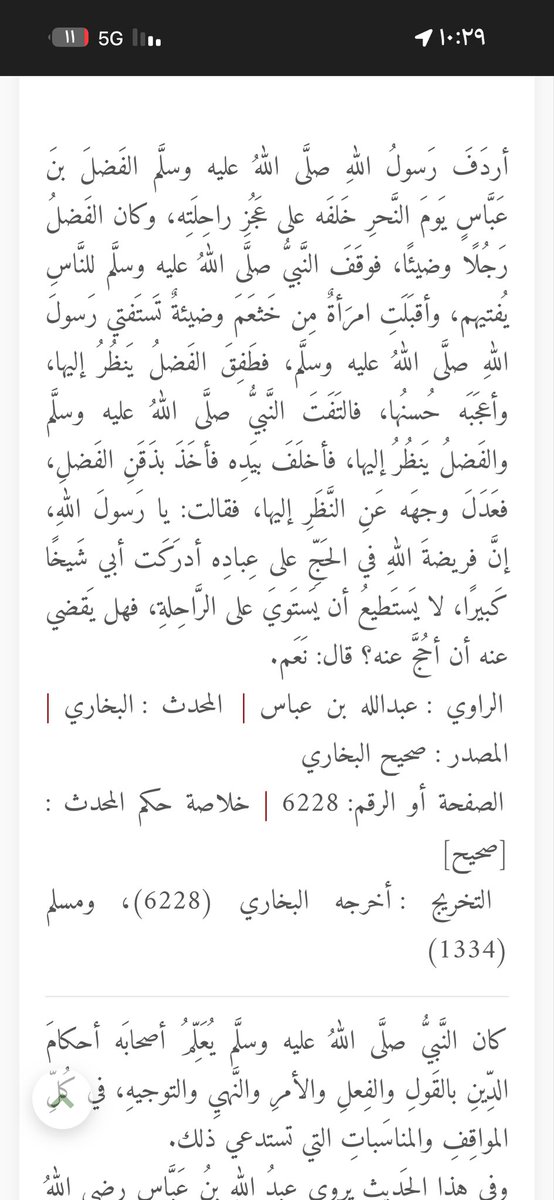 ١٠:٢٩ 5G ١١
أردَفَ رَسولُ اللهِ صلَّى اللهُ عليه وسلَّم الفَضلَ بنَ
عَبَّاسٍ يَومَ النَّحرِ خَلفَه على عَجُزِ راحِلَتِه، وكان الفَضلُ
رَجُلًا وضيئًا، فوقَفَ النَّبيُّ صلَّى اللهُ عليه وسلَّم للنَّاسِ
يُفتيهم، وأقبَلَتِ امرَأةٌ مِن خَثعَمَ وضيئةٌ تَستَفتي رَسولَ
اللهِ صلَّى اللهُ عليه وسلَّم، فطَفِقَ الفَضلُ يَنظُرُ إليها،
وأعجَبَه حُسنُها، فالتَفَتَ النَّبيُّ صلَّى اللهُ عليه وسلَّم
والفَضلُ يَنظُرُ إليها، فأخلَفَ بيَدِه فأخَذَ بذَقَنِ الفَضلِ،
فعَدَلَ وجهَه عَنِ النَّظَرِ إليها، فقالت: يا رَسولَ اللهِ،
إنَّ فريضةَ اللهِ في الحَجِّ على عِبادِه أدرَكَت أبي شَيخًا
كَبيرًا، لا يَستَطيعُ أن يَستَويَ على الرَّاحِلةِ، فهل يَقضي
عنه أن أحُجَّ عنه؟ قال: نَعَم.
الراوي : عبدالله بن عباس | المحدث : البخاري |
المصدر : صحيح البخاري
الصفحة أو الرقم: 6228 | خلاصة حكم المحدث :
[صحيح]
التخريج : أخرجه البخاري (6228)، ومسلم
(1334)
كان النَّبيُّ صلَّى اللهُ عليه وسلَّم يُعَلِّمُ أصحابَه أحكامَ
الدِّينِ بالقَولِ والفِعلِ والأمرِ والنَّهيِ والتوجيهِ، في كُلِّ
المواقِفِ والمناسَباتِ التي تستدعي ذلك.
وفي هذا الحَديثِ يروي عبدُ اللهِ بنُ عَبَّاسٍ رضي اللهُ